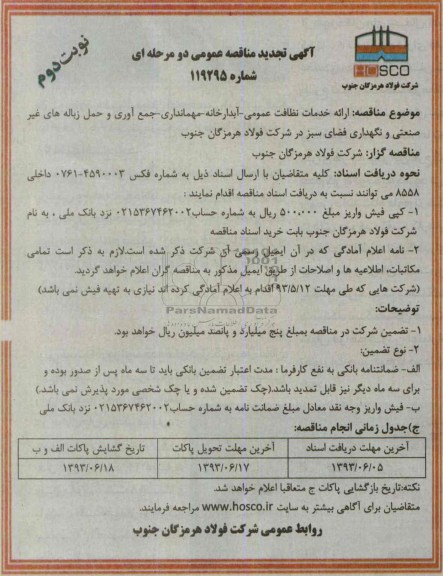 نوبت دوم
آگهی تجدید مناقصه عمومی دو مرحله ای
شماره ۱۱۹۲۹۵
HOSCO
شرکت فولاد هرمزگان جنوب
موضوع مناقصه: ارائه خدمات نظافت عمومی-آبدارخانه-مهمانداری-جمع آوری و حمل زباله های غیر
صنعتی و نگهداری فضای سبز در شرکت فولاد هرمزگان جنوب
مناقصه گزار: شرکت فولاد هرمزگان جنوب
نحوه دریافت اسناد: کلیه متقاضیان با ارسال اسناد ذیل به شماره فکس ۴۵۹۰۰۰۳-۰۷۶۱ داخلی
۸۵۵۸ می توانند نسبت به دریافت اسناد مناقصه اقدام نمایند :
۱- کپی فیش واریز مبلغ ۵۰۰،۰۰۰ ریال به شماره حساب۰۲۱۵۳۶۷۴۶۲۰۰۲ نزد بانک ملی ، به نام
شرکت فولاد هرمزگان جنوب بابت خرید اسناد مناقصه
۲- نامه اعلام آمادگی که در آن ایمیل رسمی آن شرکت ذکر شده است.لازم به ذکر است تمامی
مکاتبات، اطلاعیه ها و اصلاحات از طریق ایمیل مذکور به مناقصه گران اعلام خواهد گردید.
(شرکت هایی که طی مهلت ۹۳/۵/۱۲ اقدام به اعلام آمادگی کرده اند نیازی به تهیه فیش نمی باشد)
ParsNamadData
توضیحات:
۱- تضمین شرکت در مناقصه بمبلغ پنج میلیارد و پانصد میلیون ریال خواهد بود.
۲- نوع تضمین:
الف- ضمانتنامه بانکی به نفع کارفرما : مدت اعتبار تضمین بانکی باید تا سه ماه پس از صدور بوده و
برای سه ماه دیگر نیز قابل تمدید باشد.(چک تضمین شده و یا چک شخصی مورد پذیرش نمی باشد.)
ب- فیش واریز وجه نقد معادل مبلغ ضمانت نامه به شماره حساب۰۲۱۵۳۶۷۴۶۲۰۰۲ نزد بانک ملی
ج)جدول زمانی انجام مناقصه:
آخرین مهلت دریافت اسناد آخرین مهلت تحویل پاکات تاریخ گشایش پاکات الف و ب
۱۳۹۳/۰۶/۰۵ ۱۳۹۳/۰۶/۱۷ ۱۳۹۳/۰۶/۱۸
نکته:تاریخ بازگشایی پاکات ج متعاقبا اعلام خواهد شد.
متقاضیان برای آگاهی بیشتر به سایت www.hosco.ir مراجعه فرمایند.
روابط عمومی شرکت فولاد هرمزگان جنوب